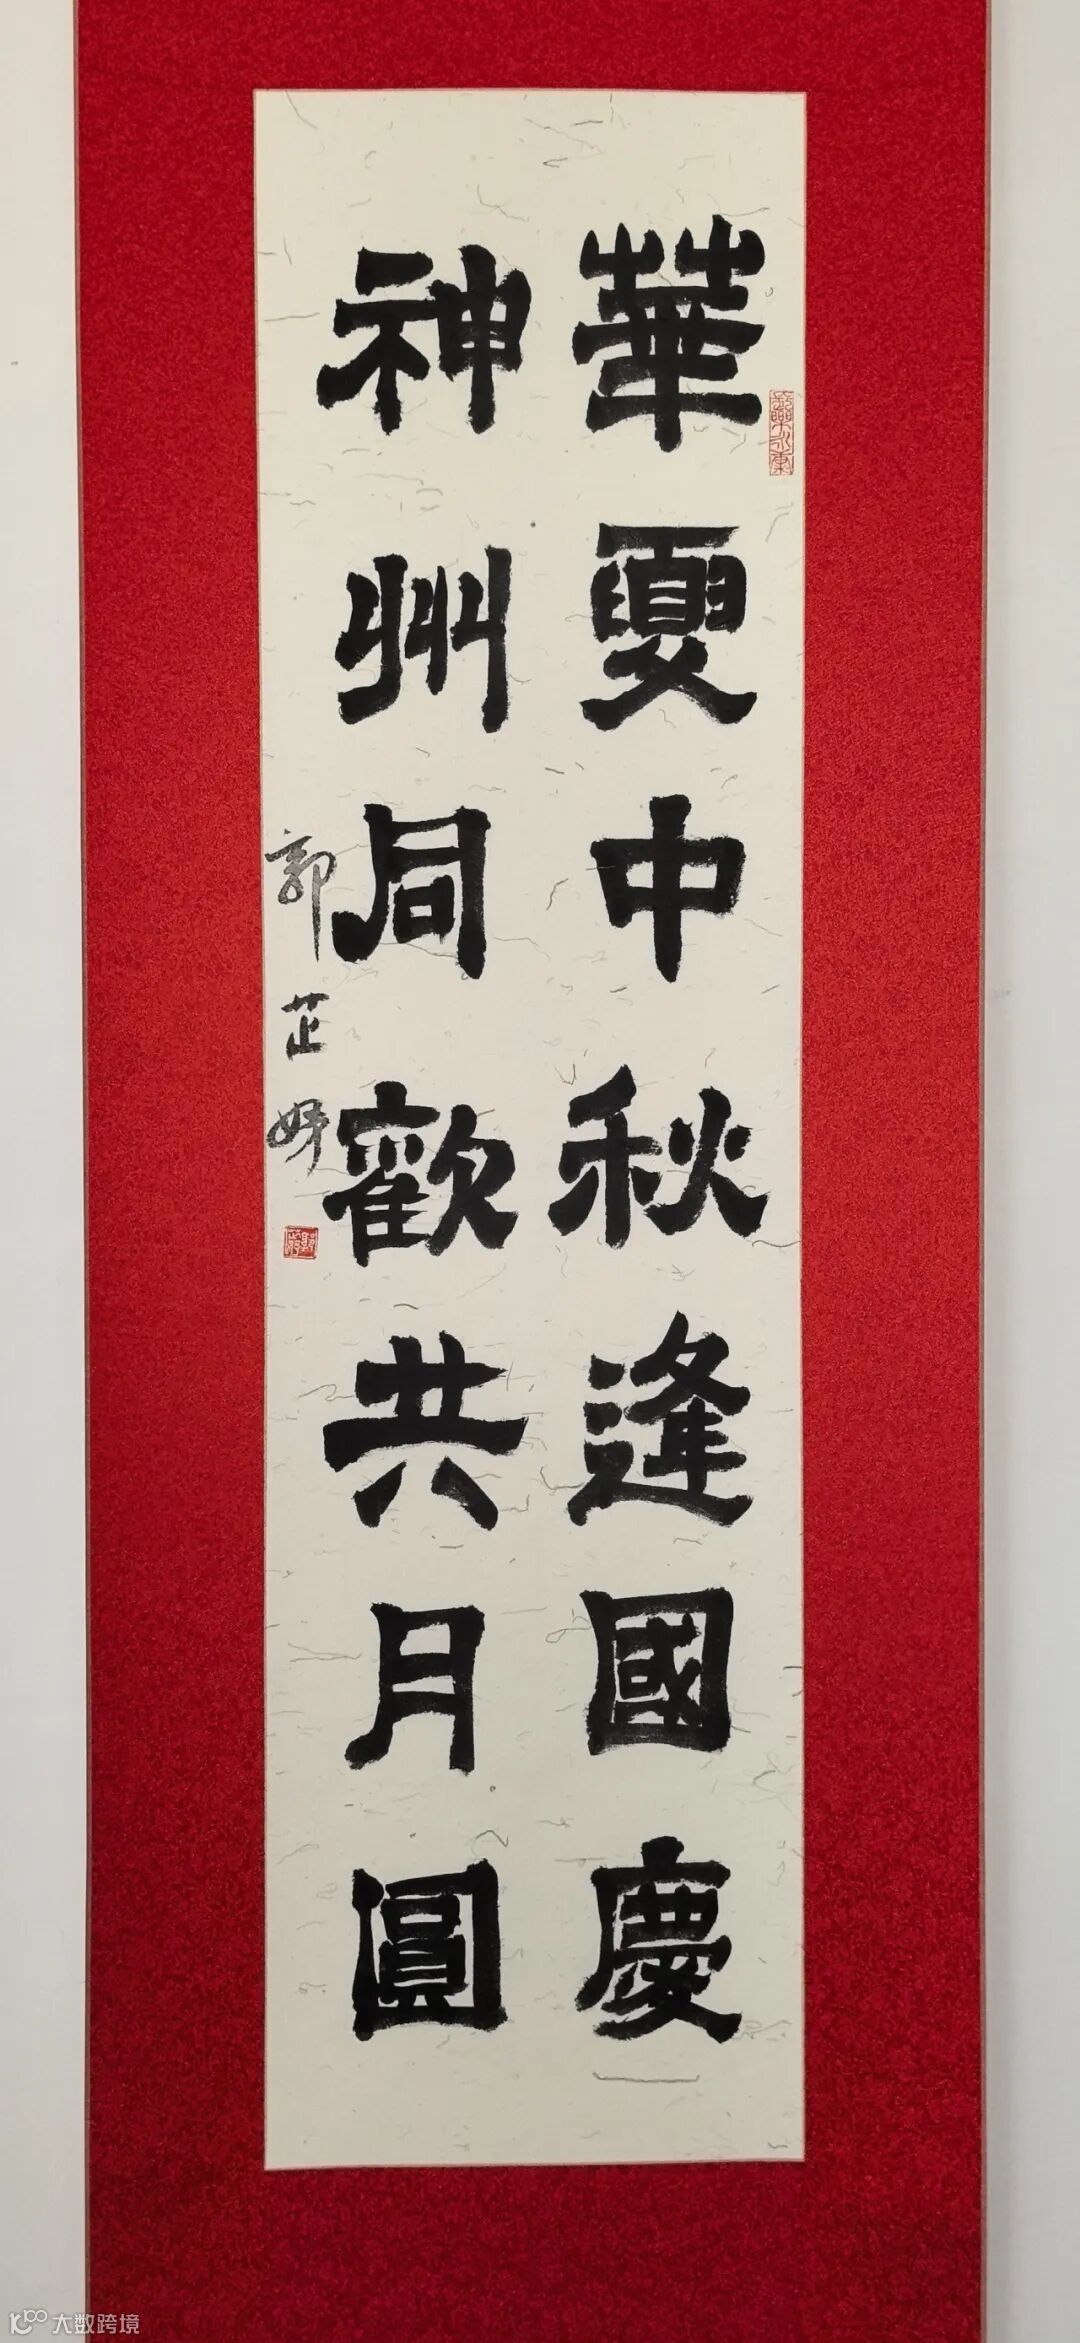 華夏中秋逢國慶
神州同歡共月圓
郭芷妤
大数跨境